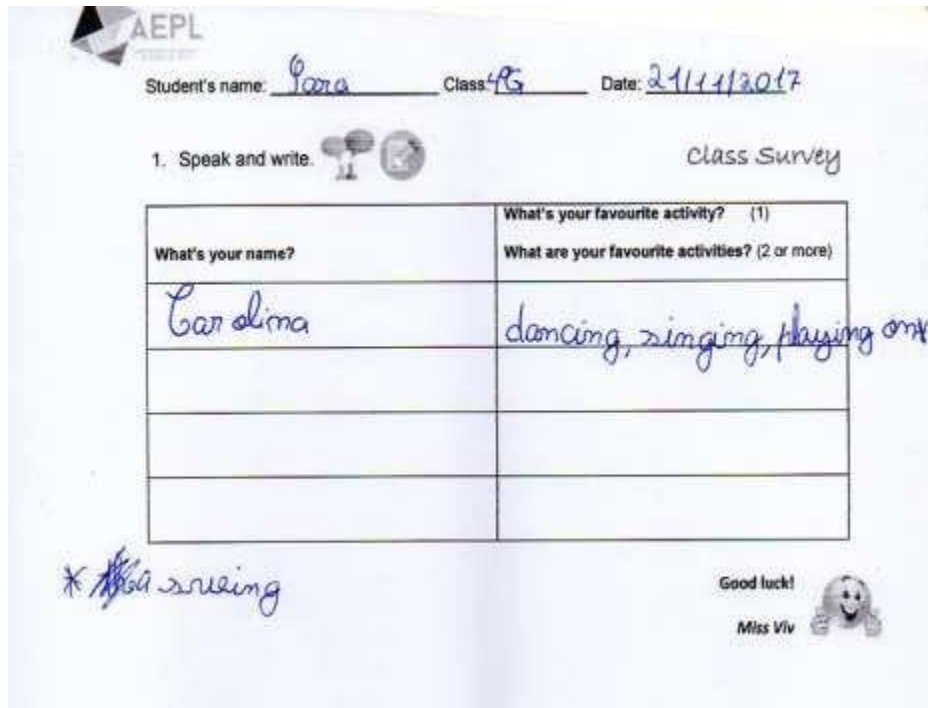 AEPL
Student's name: Yara Class: 4ºG Date: 21/11/2017
1. Speak and write. Class Survey
What's your favourite activity? (1)
What's your name? What are your favourite activities? (2 or more)
Carolina dancing, singing, playing on
* a srueing
Good luck!
Miss Viv